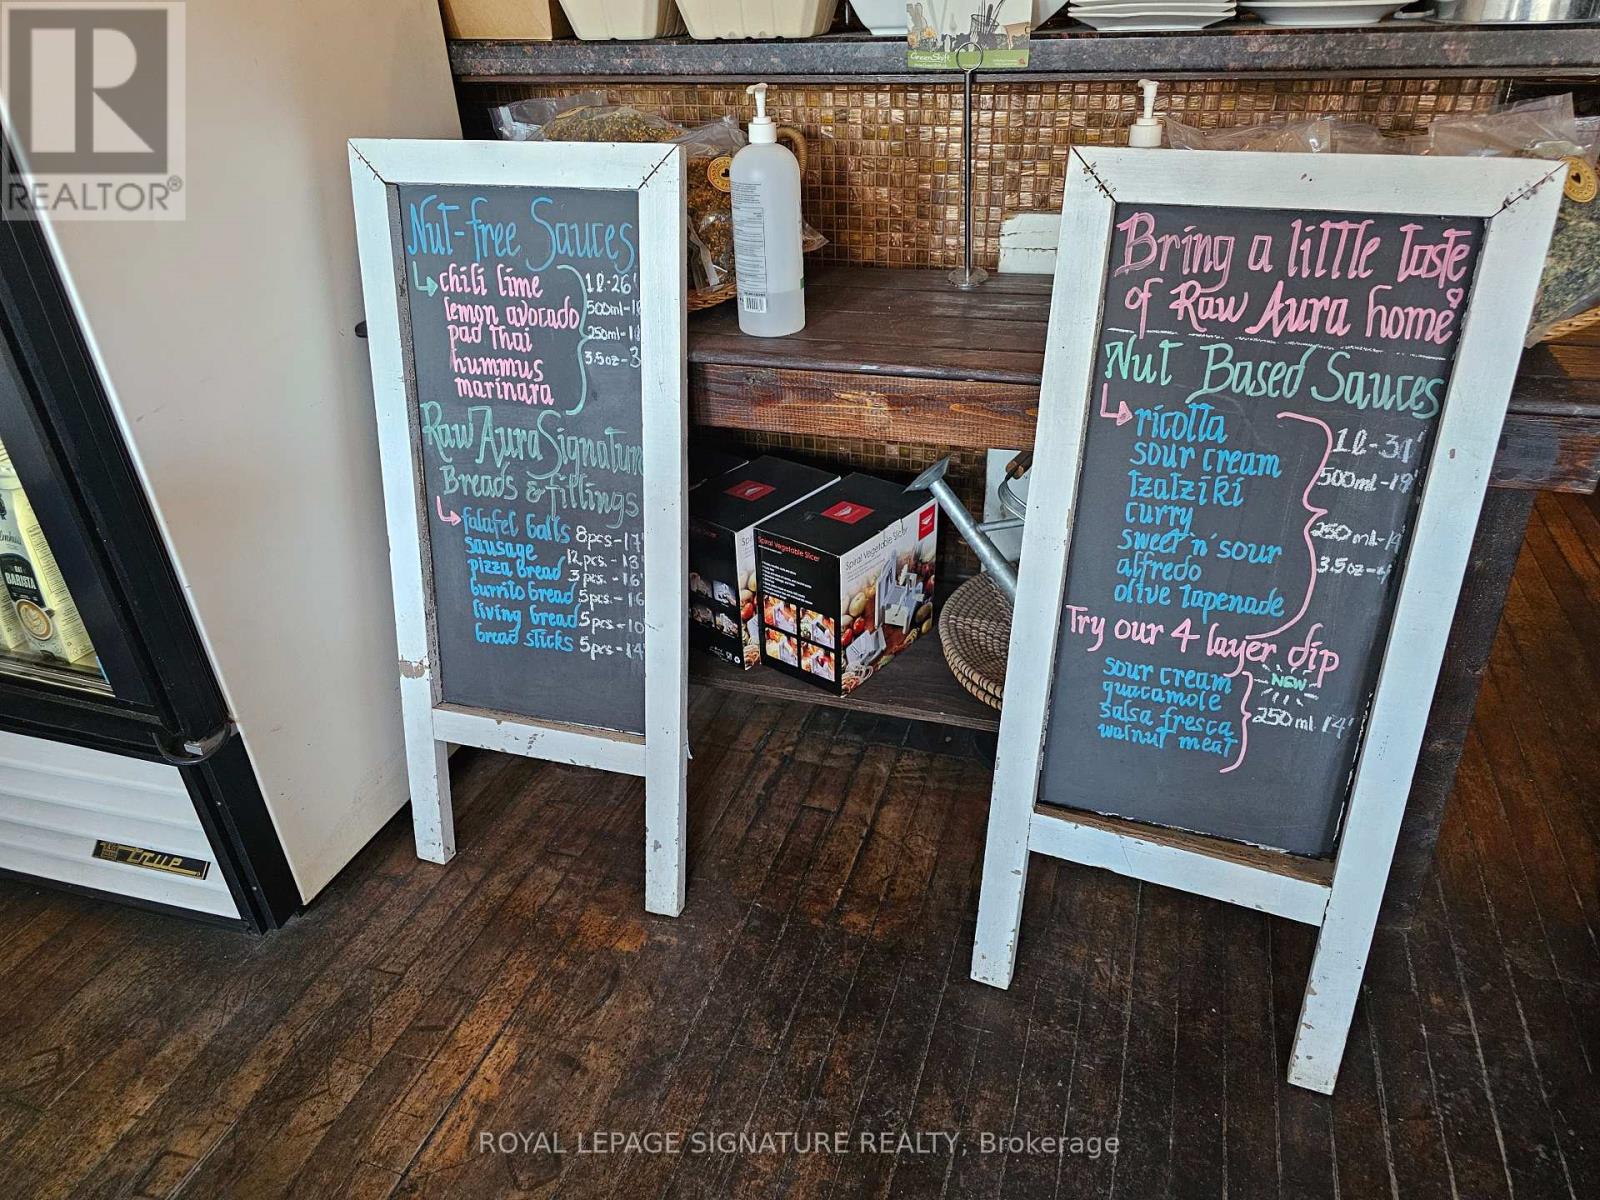 REALTOR®
GreenShift
Nut-free Sauces
chili lime
lemon avocado
pad Thai
hummus
marinara
1l-26
500ml-18
250ml-1
3.5oz-3
Raw Aura Signature
Breads & fillings
falafel balls 8pcs-17
sausage 12pcs.-13
pizza bread 3pcs.-16
burrito bread 5pcs.-16
living bread 5pcs-10
bread sticks 5pcs-14
Bring a little taste
of Raw Aura home
Nut Based Sauces
ricotta
sour cream
tzatziki
curry
sweet 'n' sour
alfredo
olive tapenade
1l-31
500ml-19
250ml-14
3.5oz-4
Try our 4 layer dip
sour cream
guacamole
salsa fresca
walnut meat
NEW
250ml 14
Spiral Vegetable Slicer
Spiral Vegetable Slicer
BARISTA
true
ROYAL LEPAGE SIGNATURE REALTY, Brokerage